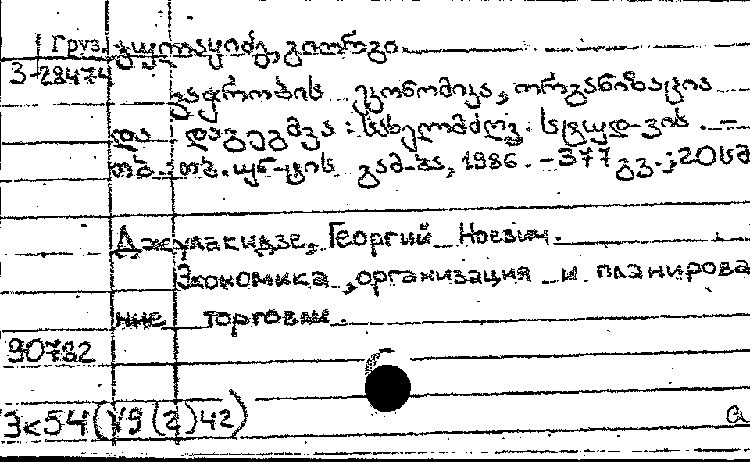 Груз.
3-28474
ვაჭრობის ეკონომიკა, ორგანიზაცია
და დაგეგმვა: სახელმძღვ. სტუდ-ვის. —
თბ.: თბ. უნ-ტის გამ-ბა, 1986. - 377 გვ.; 20სმ
Джулакидзе, Георгий Ноевич.
Экономика, организация и планирова
ние торговли.
90782
Э<54(У9(2)42)